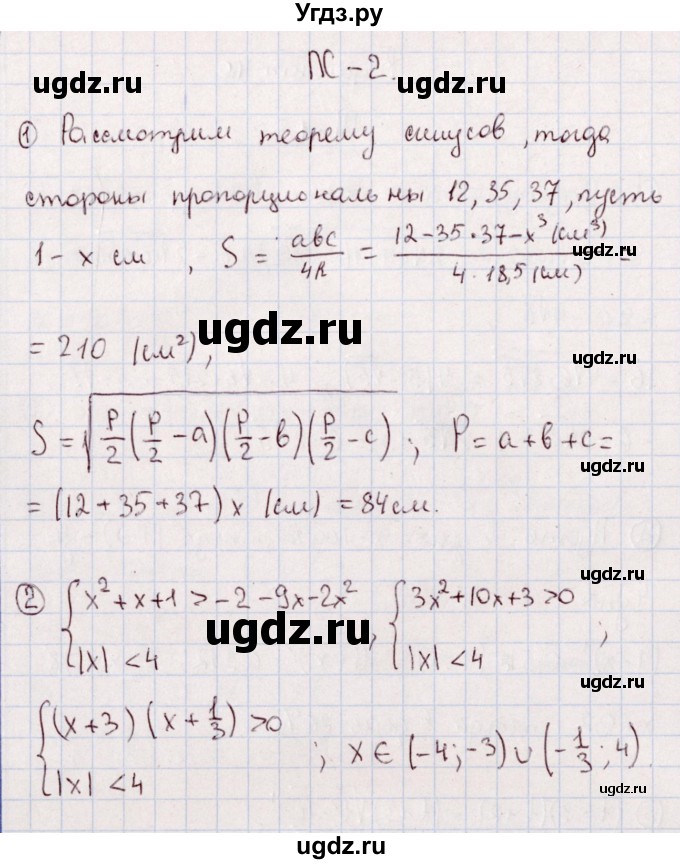 Угдз.ру
ПС-2.
ugdz.ru ugdz.ru
① Рассмотрим теорему синусов, тогда
стороны пропорциональны 12, 35, 37, пусть
1 - x см , S = abc/4R = 12-35·37-x³(см³)/4·18,5(см) =
ugdz.ru
= 210 (см²),
ugdz.ru
ugdz.ru
S = √(P/2(P/2-a)(P/2-в)(P/2-c)) ; P = a+в+c=
ugdz.ru
= (12+35+37)x (см) = 84см.
ugdz.ru
② {x²+x+1>-2-9x-2x² , {3x²+10x+3>0
ugdz.ru
|x|<4 |x|<4 ;
ugdz.ru
{(x+3)(x+1/3)>0
|x|<4 ; x∈(-4;-3)∪(-1/3;4).
ugdz.ru
ugdz.ru